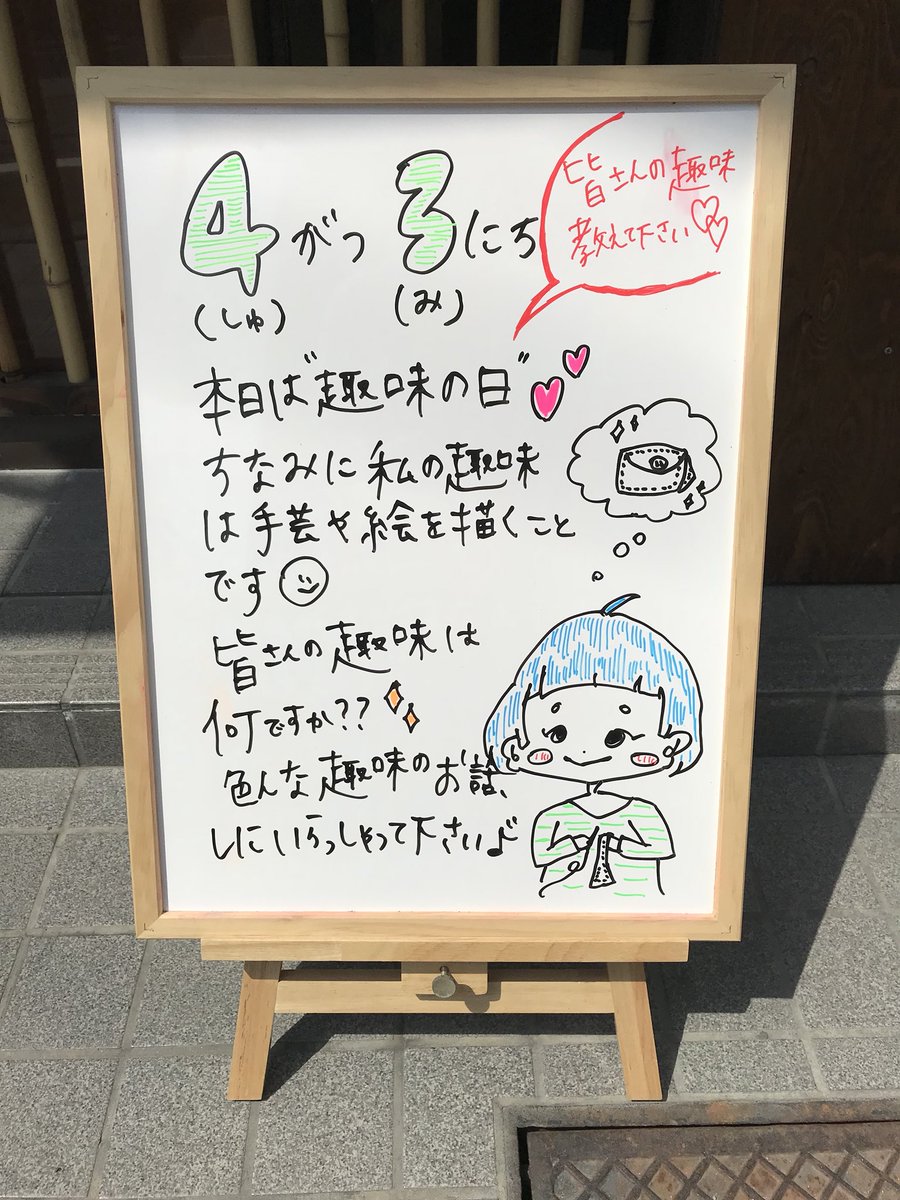 4がつ3にち
(しゅ) (み)
皆さんの趣味
教えて下さい♡♡
本日は"趣味の日"
ちなみに私の趣味
は手芸や絵を描くこと
です
皆さんの趣味は
何ですか??
色んな趣味のお話、
しにいらっしゃって下さい♪